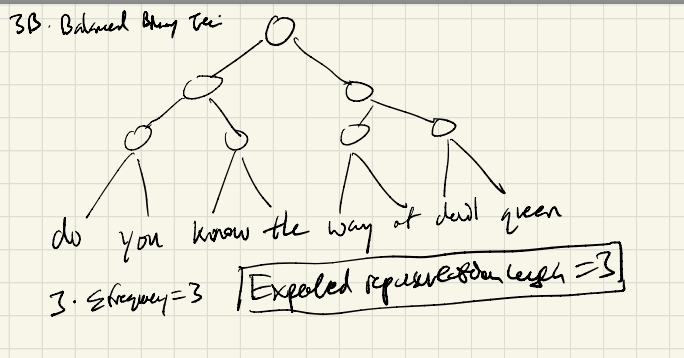 3B. Balanced Binary Tree
do you know the way of devil queen
3 · Σ frequency = 3
Expected representation length = 3